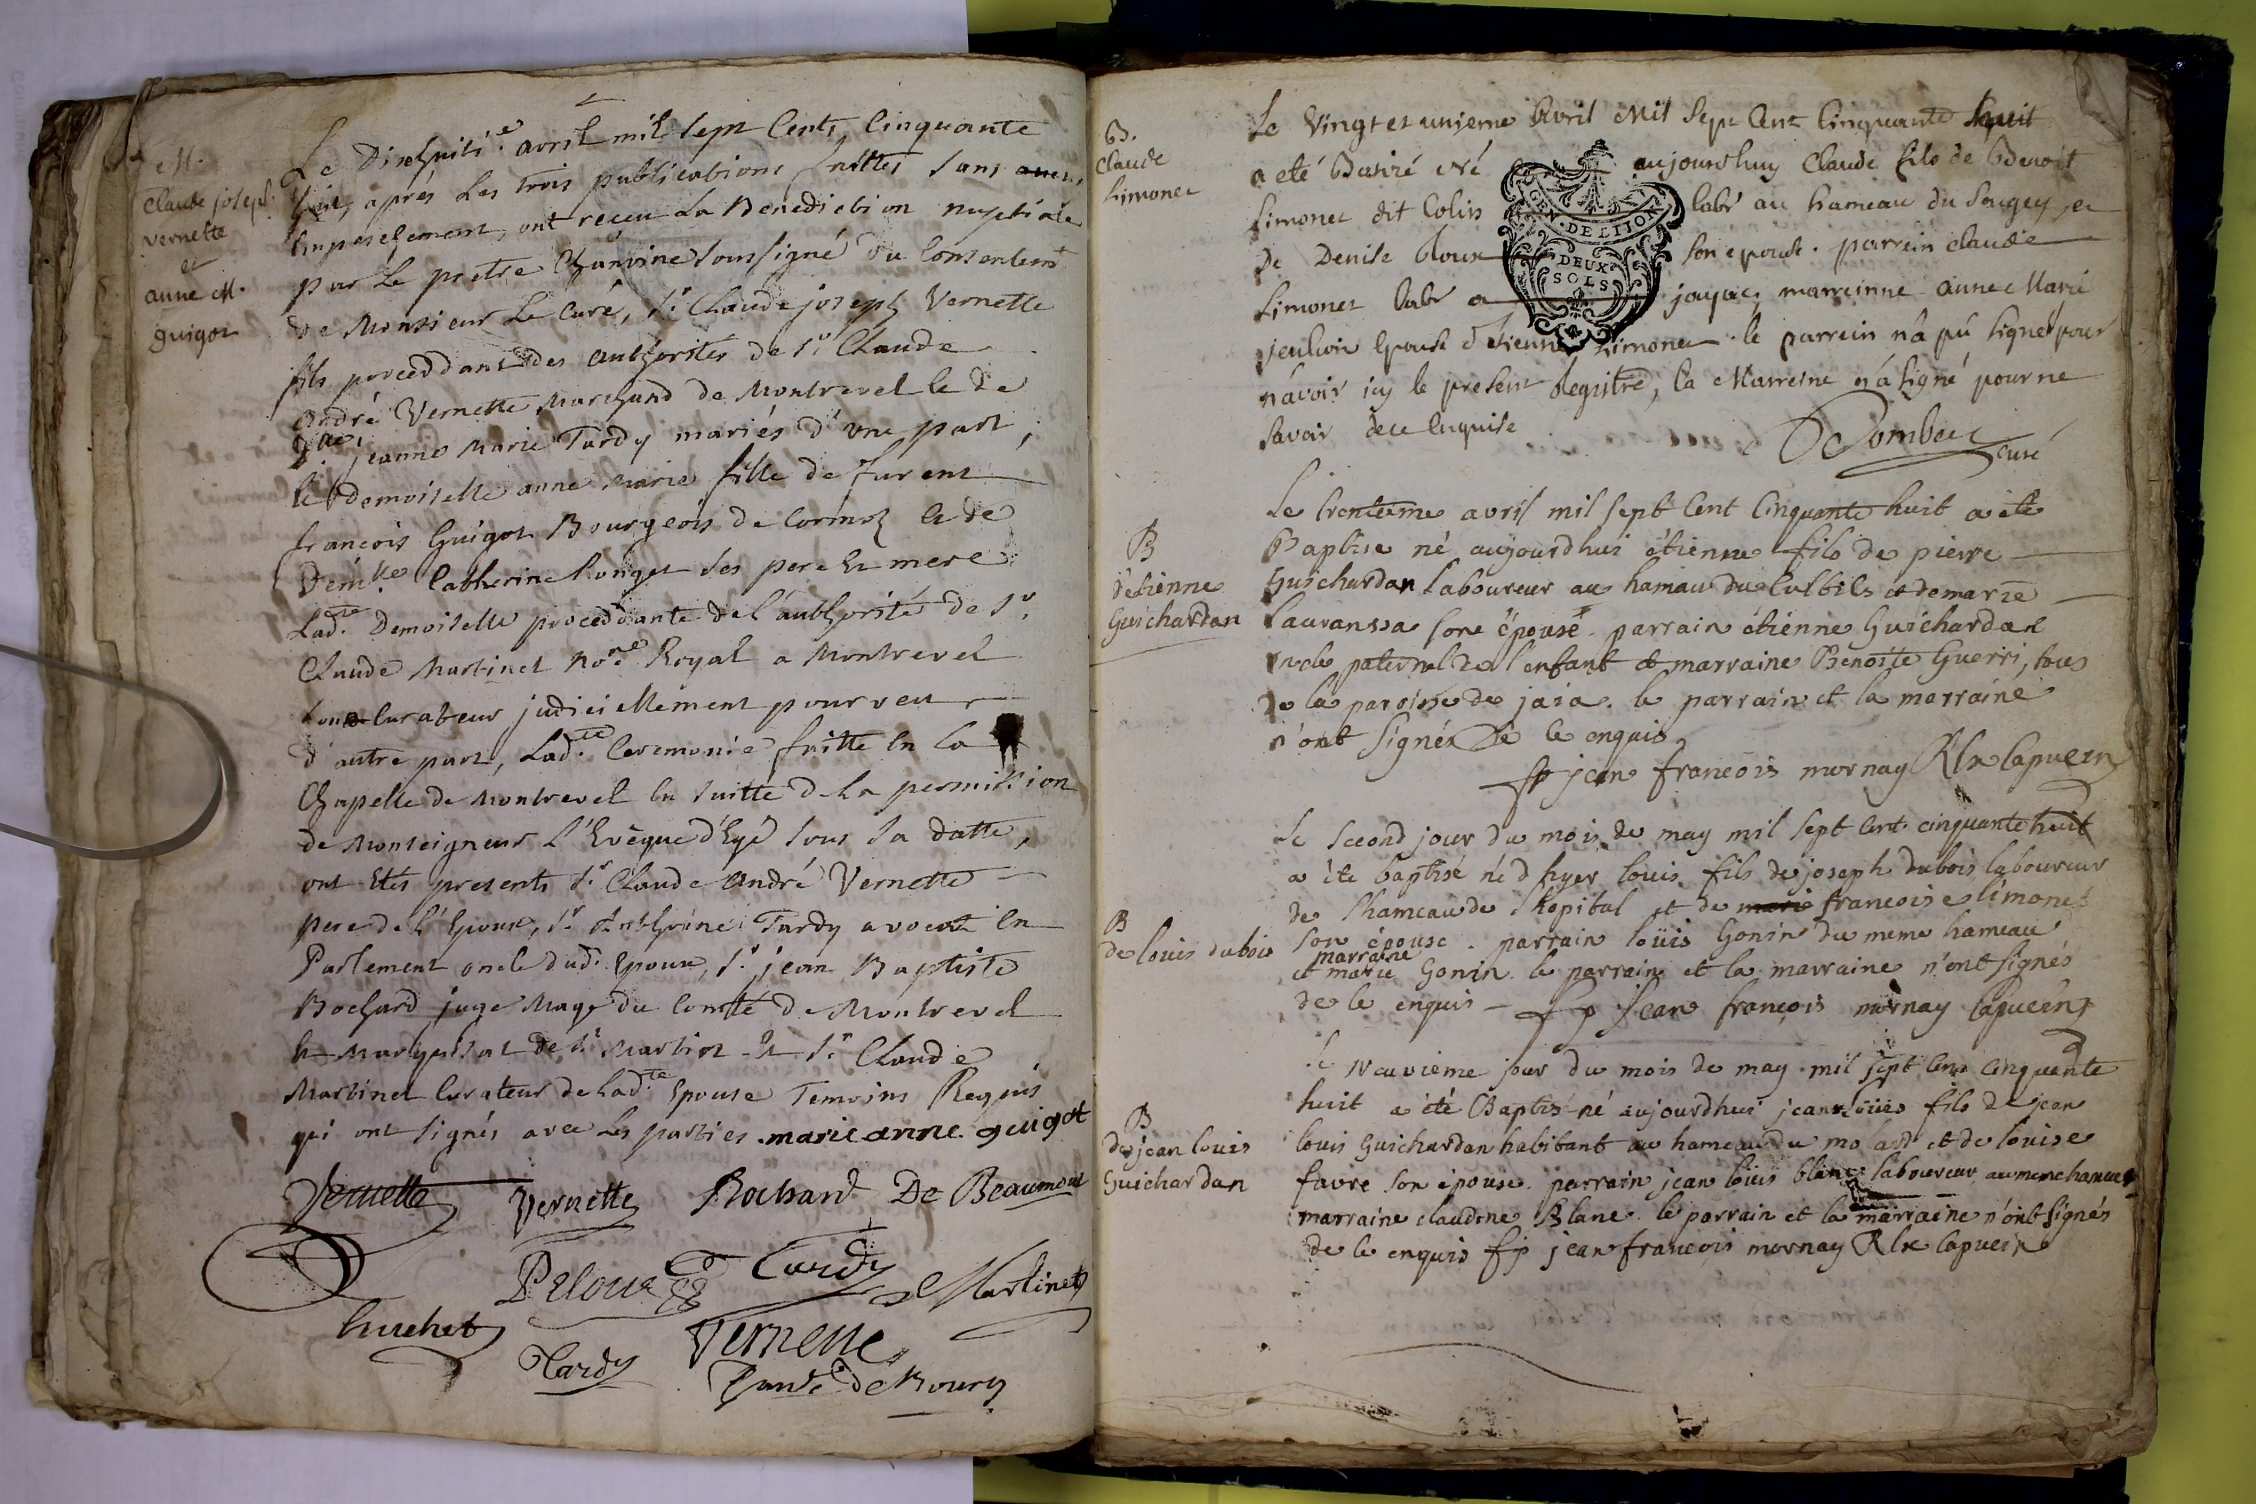 M.
Claude joseph
vernette
et
anne M.
guigot
Le Dixhuiti.e avril mil sept Cents Cinquante
huit, aprés Les trois publications faittes sans aucun
Empeschement, ont reçeu La Benediction nuptiale
par Le pretre Chanoine soussigné du Consentemt
de Monsieur Le Curé, Sr. Claude joseph Vernette
fils proceddant des authorites de Sr. Claude
André Vernette Marchand de Montrevel et de
jeanne Marie Tardy mariés d'une part,
et demoiselle anne Marie fille de
françois Guigot Bourgeois de Cormoz et de
Demlle. Catherine Ponget ses pere Et mere
Ladte. Demoiselle proceddante de l'authorité de Sr.
Claude Martinet Nore. Royal a Montrevel
son Curateur judiciellement pourveu
d'autre part, Ladte. Ceremonie faitte En La
Chapelle de Montrevel En suitte de La permission
de Monseigneur L'Evêque d'Egé sous sa datte,
ont Etés presents Sr. Claude André Vernette
pere de l'Epoux, Sr. Anthoine Tardy avocat En
Parlement oncle dud. Epoux, Sr. jean Baptiste
Bochard juge Mage du Comté de Montrevel
Et Marquisat de St. Martin Et Sr. Claude
Martinet Curateur de Ladte. Epouse Temoins Requis
qui ont signés avec Les parties. marie anne guigot
Vernette Vernette Bochard De Beaumont
Peloux Tardy Martinet
Guichet Vernette
Tardy
B.
Claude
Limonet
Le Vingt et unieme Avril Mil Sept Cent Cinquante huit
a eté Batizé Né aujourdhuy Claude fils de Benoit
Limonet dit Colin labr au hameau du Sougey, et
de Denise bloux son epouse. parrein claude
Limonet labr a jayac, marreinne anne Marie
épouse d'etienne Limonet le parrein n'a pû signer pour
n'avoir icy le present Registre, la Marreine n'a signé pour ne
savoir de ce Enquise
GEN. DE LION
DEUX
SOLS
curé
B
d'etienne
Guichardan
Le trentieme avril mil sept Cent Cinquante huit a été
Baptise né aujourdhui étienne fils de pierre
Guichardan laboureur au hamau du et de marie
Lauransa son épouse parrain étienne Guichardan
oncle paternel de l'enfant et marraine Benoite Guerri, tous
de la paroisse de jaia. le parrain et la marraine
n'ont signés de le enquis
fp jean francois mornay Rlx Capucin
B
de louis dubois
Le second jour du mois de may mil sept Cent cinquante huit
a été baptisé né d'hyer louis fils de joseph dubois laboureur
de l'hameau de l'hopital et de marie francoise limonet
son épouse. parrain loüis Gonin du meme hameau
et marraine marie Gonin. le parrain et la marraine n'ont signés
de le enquis fp Jean françois mornay Capucin
B
de jean louis
Guichardan
Le Neuvieme jour du mois de may mil sept Cent Cinquante
huit a été Baptisé né aujourdhui jean loüis fils de jean
louis Guichardan habitant au hameau du molard et de louise
favre son épouse. parrain jean loüis blanc laboureur au meme hameau
marraine claudine Blanc. le parrain et la marraine n'ont signés
de le enquis fp jean francois mornay Rlx Capucin